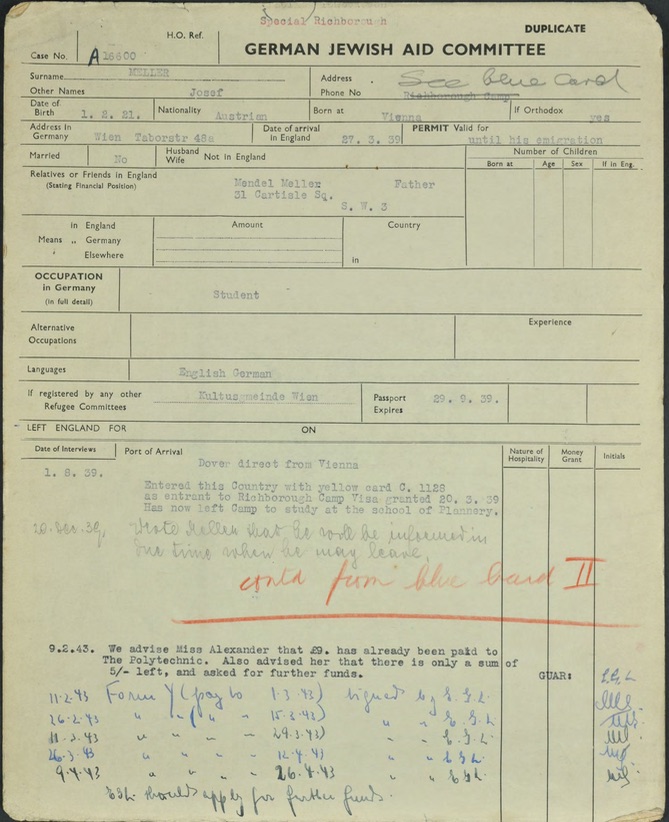 Special Richborough
DUPLICATE
H.O. Ref.
GERMAN JEWISH AID COMMITTEE
Case No. A 16600
Surname MELLER
Address See blue Card
Other Names Josef
Phone No Richborough Camp
Date of Birth 1. 2. 21. Nationality Austrian Born at Vienna If Orthodox yes
Address in Germany Wien Taborstr 48a Date of arrival in England 27. 3. 39 PERMIT Valid for until his emigration
Married No Husband Wife Not in England Number of Children
Born at Age Sex If in Eng.
Relatives or Friends in England Mendel Meller Father
(Stating Financial Position) 31 Carlisle Sq.
S. W. 3
in England Amount Country
Means „ Germany
Elsewhere in
OCCUPATION
in Germany Student
(in full detail)
Alternative Occupations Experience
Languages English German
If registered by any other Refugee Committees Kultusgemeinde Wien Passport Expires 29. 9. 39.
LEFT ENGLAND FOR ON
Date of Interviews Port of Arrival Nature of Hospitality Money Grant Initials
Dover direct from Vienna
1. 8. 39.
Entered this Country with yellow card C. 1128
as entrant to Richborough Camp Visa granted 20. 3. 39
Has now left Camp to study at the school of Plannery.
20. Dec. 39. Wrote Meller that he will be informed in
due time when he may leave.
contd from blue Card II
9.2.43. We advise Miss Alexander that £9. has already been paid to
The Polytechnic. Also advised her that there is only a sum of
5/- left, and asked for further funds. GUAR:
11-2-43 Form Y (pay to 1-3-43) signed by E.G.L.
26-2-43 " " ( " " 15-3-43) " " E.G.L.
11-3-43 " " " " 29-3-43) " " E.G.L.
26-3-43 " " " " 12-4-43) " " EGL
9-4-43 " " " " 26-4-43 " " EGL
EGL should apply for further funds.